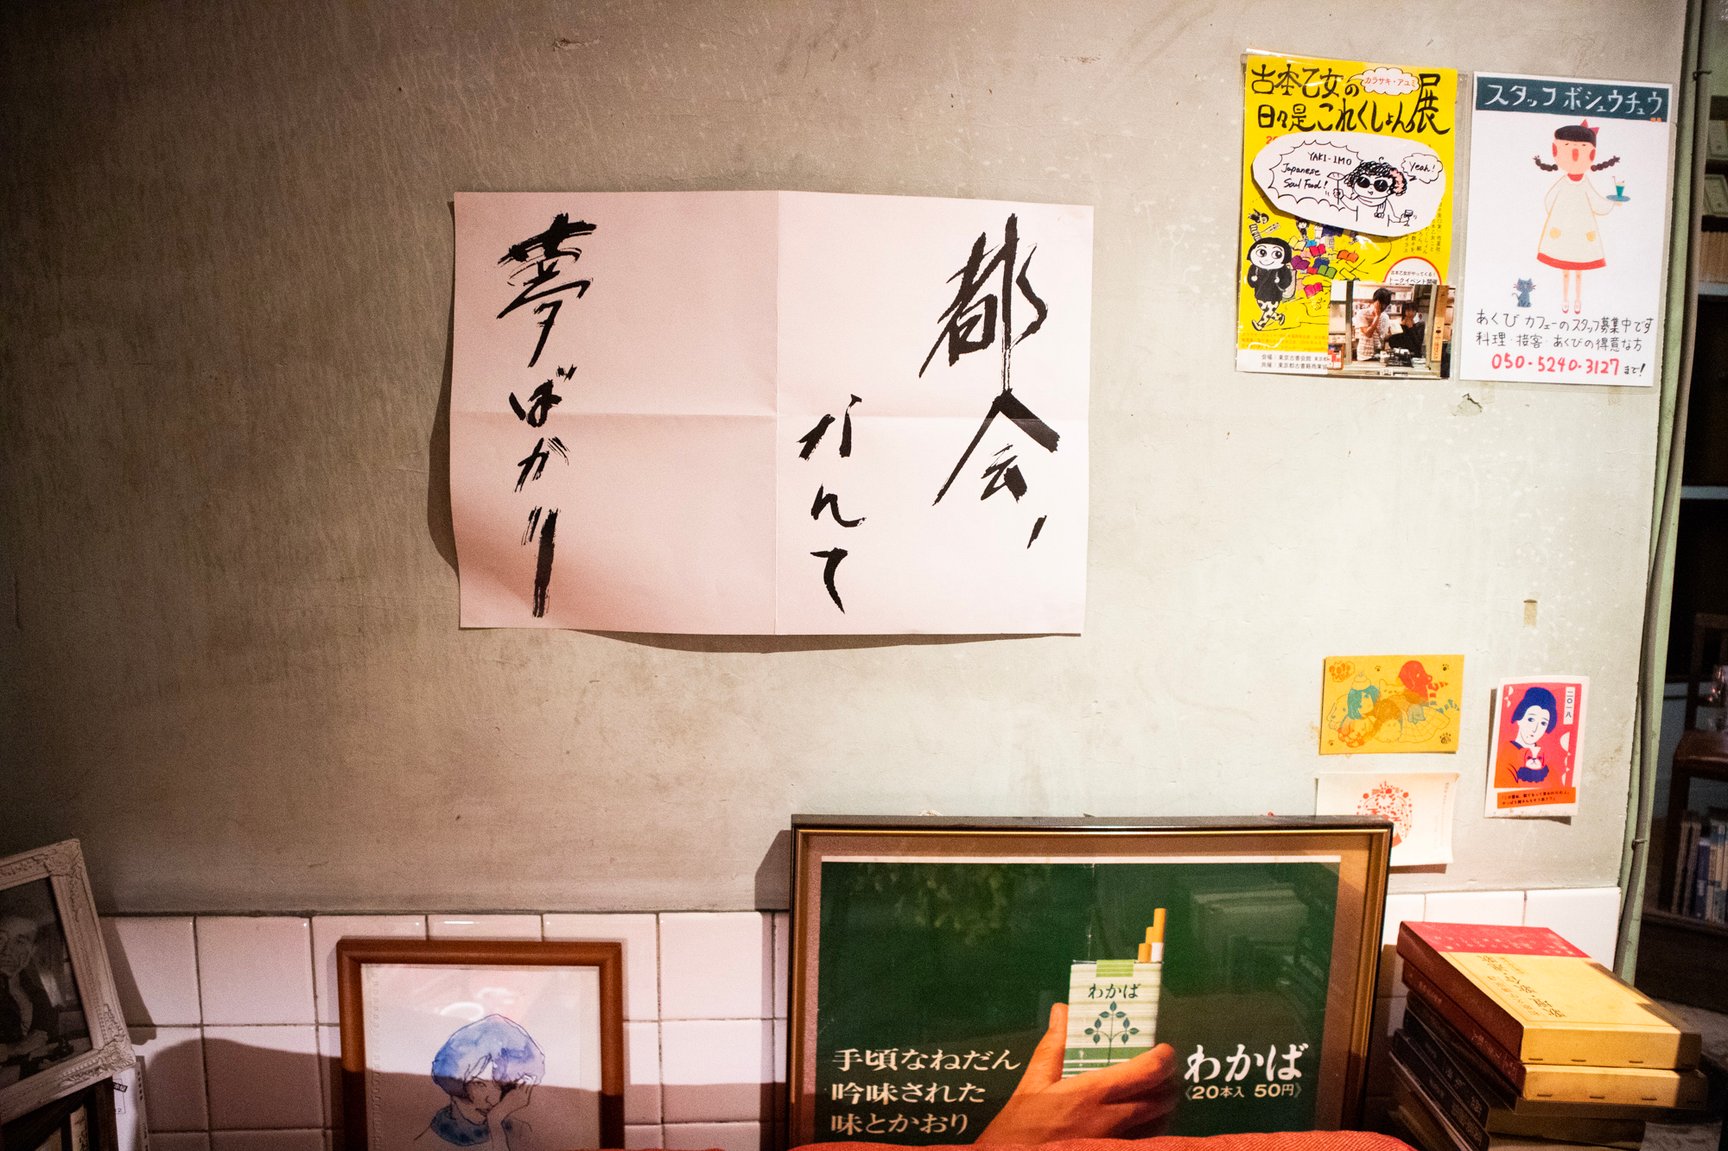 都会、
なんて
夢ばかり
古本乙女の
カラサキ・アユミ
日々是これくしょん展
YAKI-IMO
Japanese
Soul Food!
Yeah!
古本乙女がやってくる!
トークイベント開催
会場:東京古書会館
スタッフ ボシュウチュウ
あくび カフェーのスタッフ募集中です
料理・接客・あくびの得意な方
050-5240-3127 まで!
二〇一八
わかば
手頃なねだん
吟味された
味とかおり
わかば
《20本入 50円》